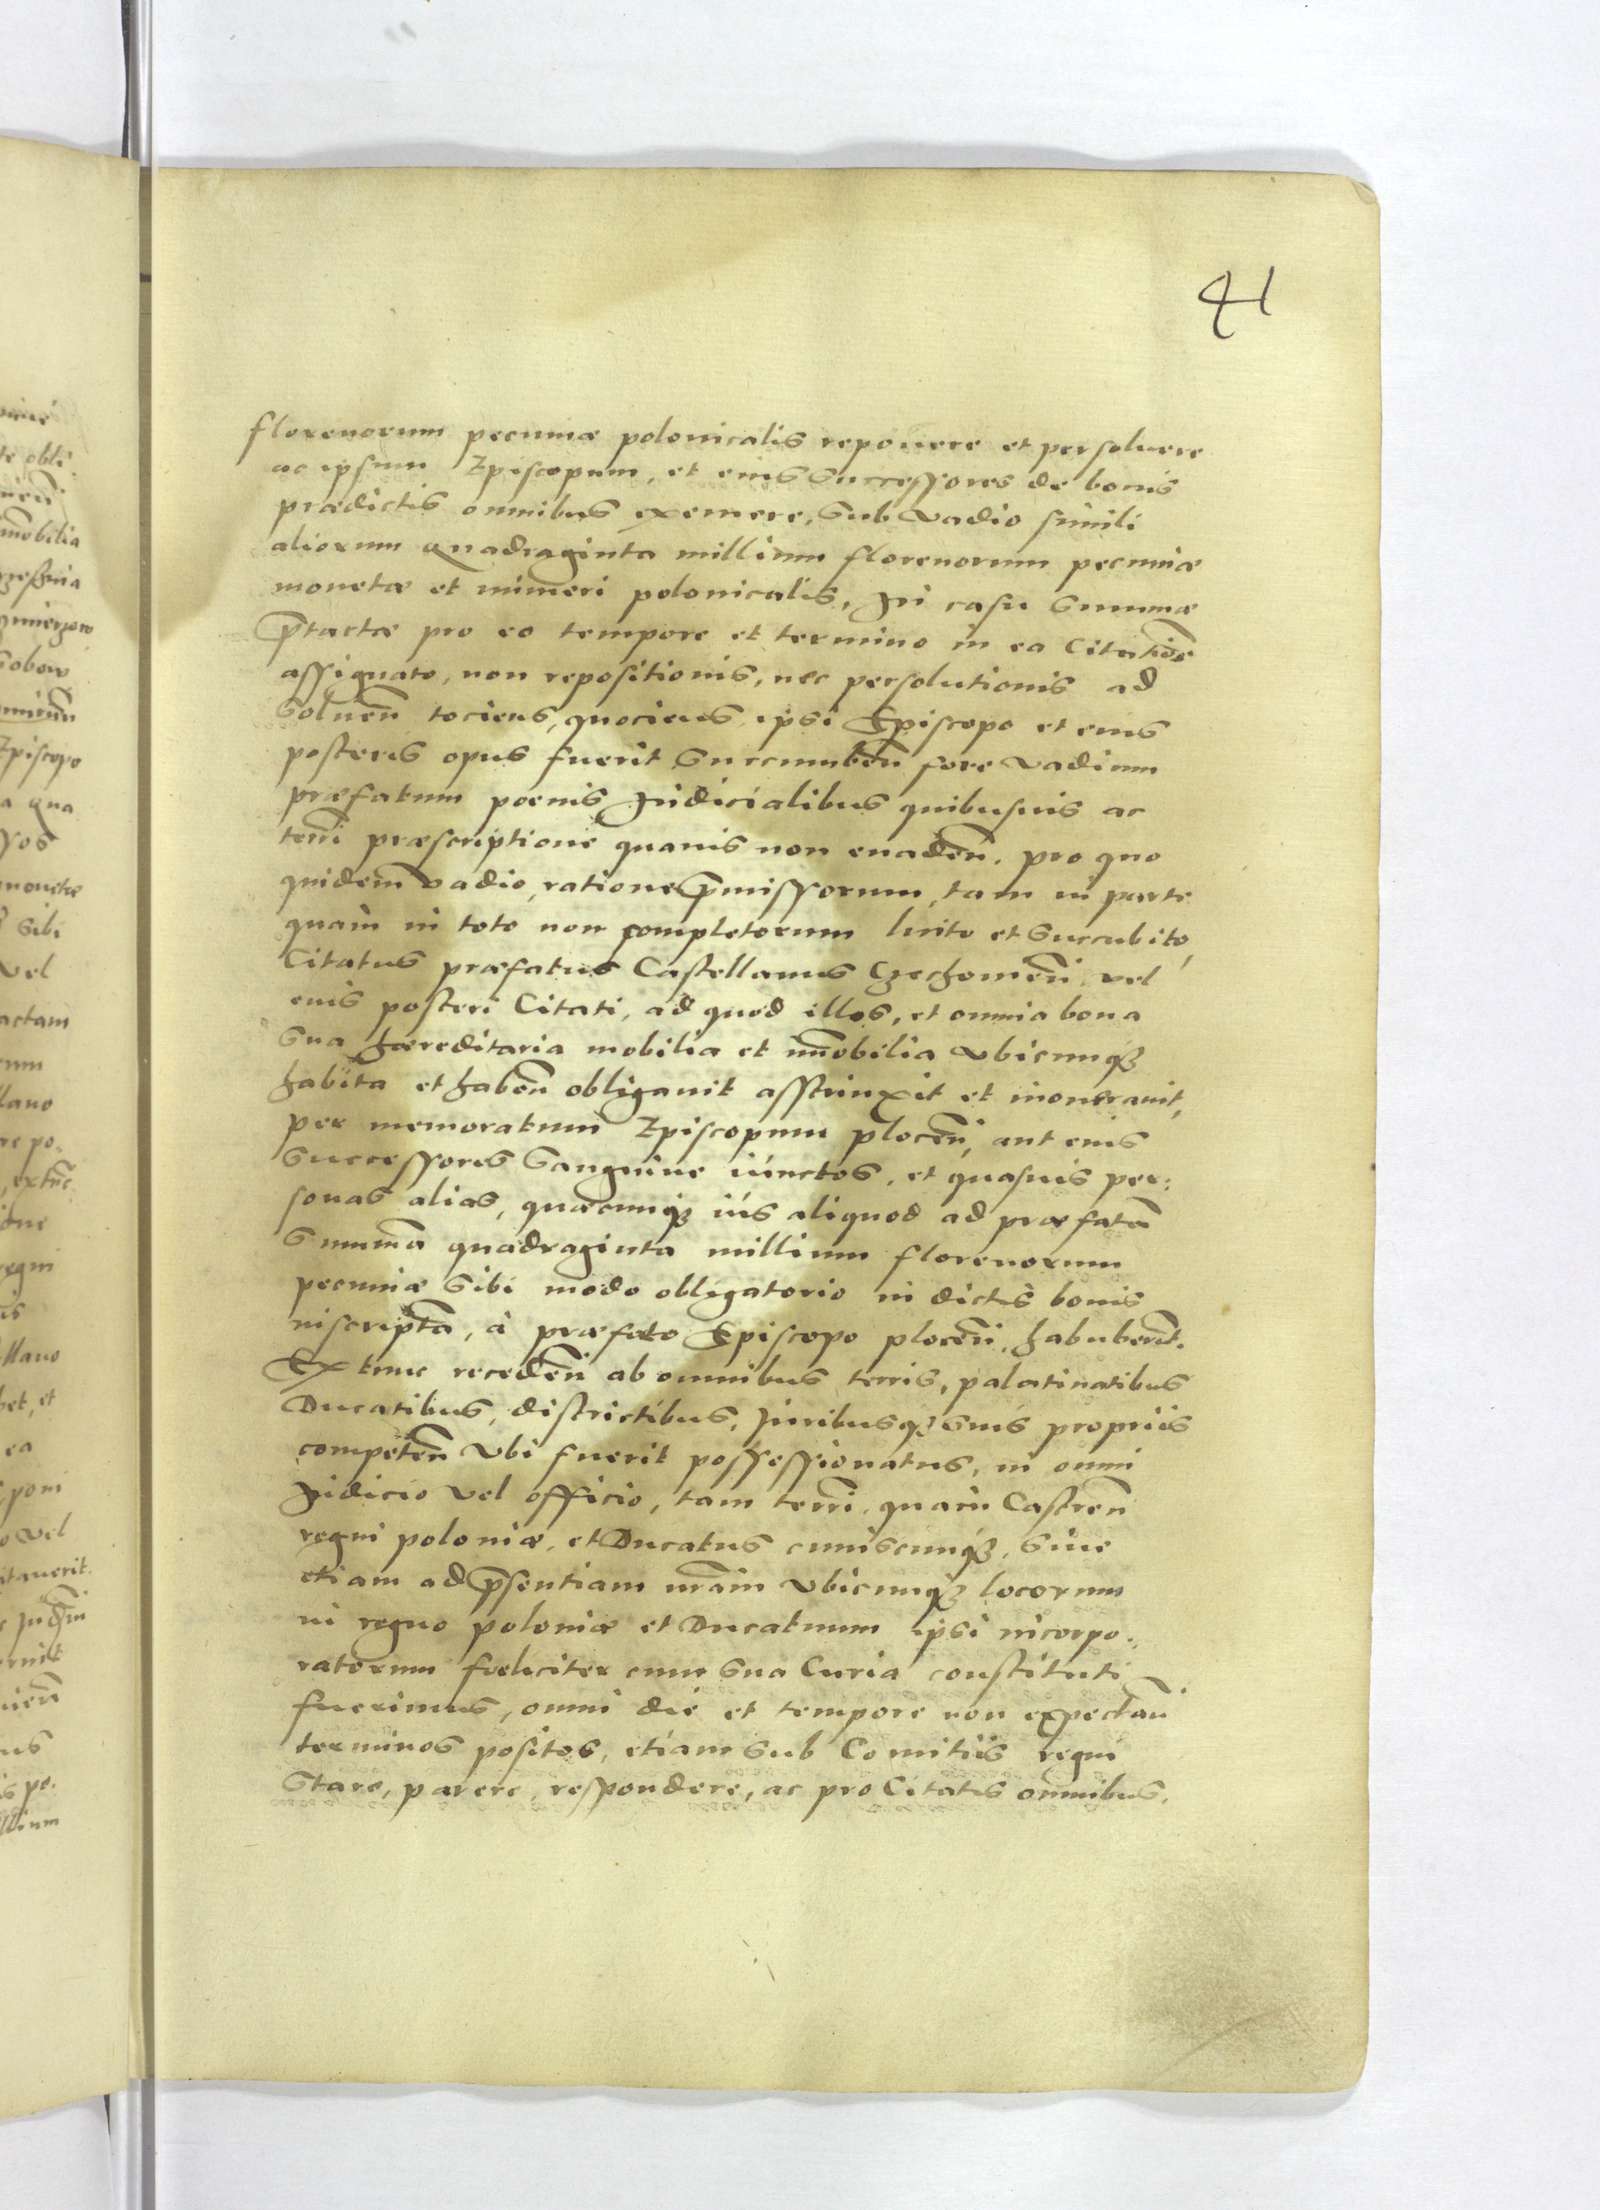 41
florenorum pecuniæ polonicalis reponere et persoluere
ac ipsum Episcopum, et eius Successores de bonis
prædictis omnibus eximere, Sub Vadio simili
aliorum Quadraginta millium florenorum pecuniæ
monetæ et numeri polonicalis, In casu Summæ
p̄tactæ pro eo tempore et termino in ea Citatiōe
assignato, non repositionis, nec persolutionis ad
Soluen̄ tociens, quociens ipsi Episcopo et eius
posteris opus fuerit Succumben̄ fore Vadium
præfatum poenis Iudicialibus quibusuis ac
terri præscriptione quauis non euaden̄. pro quo
quidem Vadio, ratione p̄missorum, tam in parte
quam in toto non completorum lucito et Succubito,
Citatus præfatus Castellanus Czechomen̄ vel
eius posteri Citati, ad quod illos, et omnia bona
Sua hæreditaria mobilia et im̄obilia Vbicunqȝ
habita et haben̄ obligauit asstrinxit et inonerauit,
per memoratum Episcopum plocen̄, aut eius
Successores Sanguine iunctos, et quasuis per:
sonas alias, quæcunqȝ ius aliquod ad præfatā
Summā quadraginta millium florenorum
pecuniæ Sibi modo obligatorio in dictis bonis
inscriptā, à præfato Episcopo plocen̄, habuberēt.
Ex tunc receden̄ ab omnibus terris, palatinatibus
Ducatibus, districtibus, Iuribusqȝ Suis propriis
competen̄ Vbi fuerit possessionatus, in omni
Iudicio Vel officio, tam terri, quam Castren̄
regni poloniæ, et Ducatus cuiuscunqȝ, Siue
etiam ad p̄sentiam nr̄am Vbicunqȝ locorum
in regno poloniæ et Ducatuum ipsi incorpo.
ratorum foeliciter cum Sua Curia constituti
fuerimus, omni die et tempore non expectan̄
terminos positos, etiam Sub Comitiis regni
Stare, parere, respondere, ac pro Citatis omnibus,